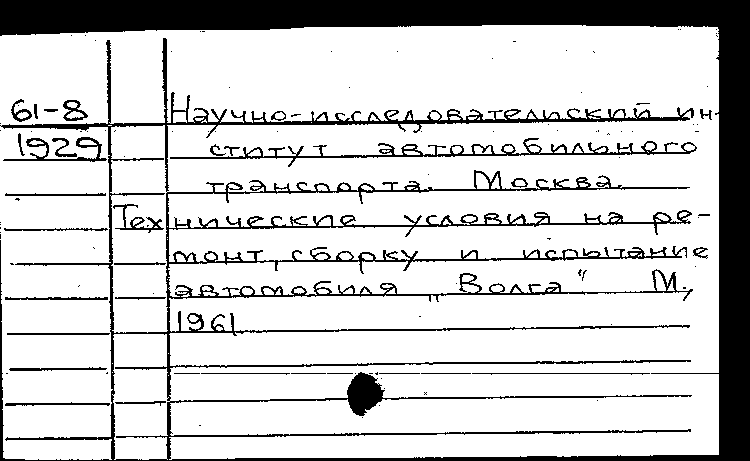 61-8 Научно-исследовательский ин-
1929 ститут автомобильного
транспорта. Москва.
Технические условия на ре-
монт, сборку и испытание
автомобиля „Волга“ М,
1961